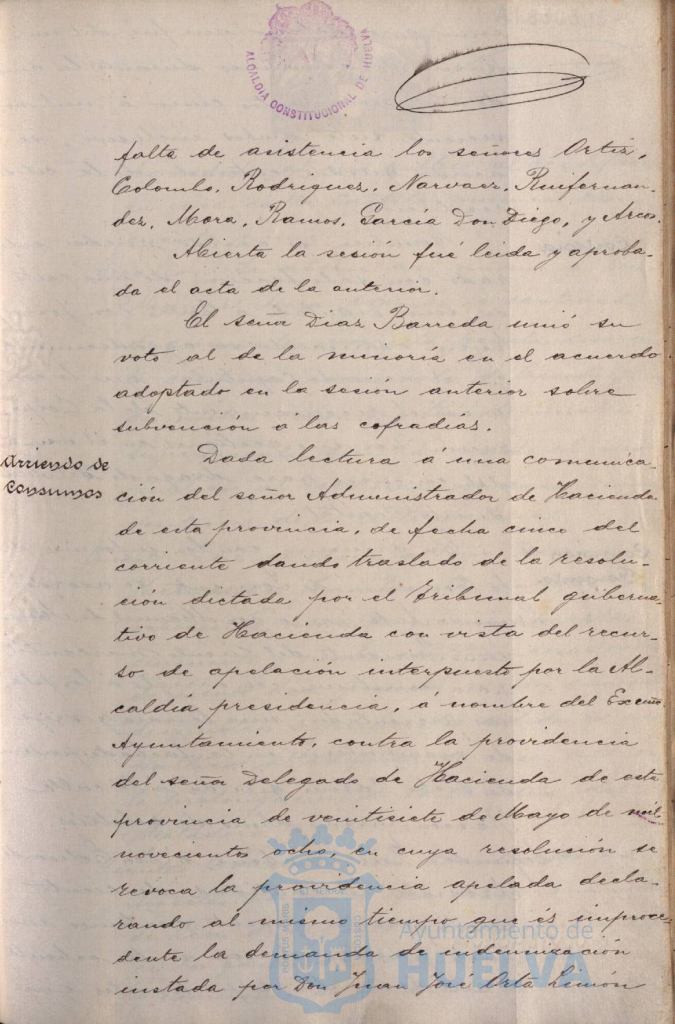 ALCALDIA CONSTITUCIONAL DE HUELVA
falta de asistencia los señores Ortiz,
Colombo, Rodriguez, Narvaez, Ruifernan-
dez, Mora, Ramos, García Don Diego, y Arcos.
Abierta la sesión fué leida y aproba-
da el acta de la anterior.
El señor Diaz Barreda unió su
voto al de la minoría en el acuerdo
adoptado en la sesión anterior sobre
subvención á las cofradías.
Arriendo de
Consumos
Dada lectura á una comunica-
ción del señor Administrador de Hacienda
de esta provincia, de fecha cinco del
corriente dando traslado de la resolu-
ción dictada por el Tribunal guberna-
tivo de Hacienda con vista del recur-
so de apelación interpuesto por la Al-
caldía presidencia, á nombre del Excmo.
Ayuntamiento, contra la providencia
del señor Delegado de Hacienda de esta
provincia de veintisiete de Mayo de mil
novecientos ocho, en cuya resolución se
revoca la providencia apelada decla-
rando al mismo tiempo que és improce-
dente la demanda de indemnización
instada por Don Juan José Orta Limón
Ayuntamiento de
HUELVA